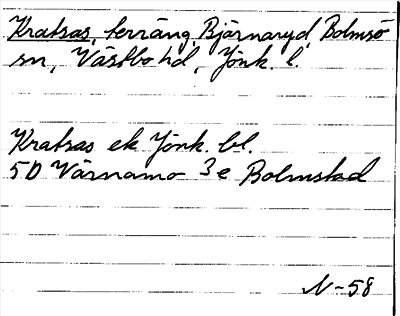 Kratsas, terräng, Bjärnaryd, Bolmsö
sn, Västbo hd, Jönk. l.
Kratsas ek Jönk. bl.
5D Värnamo 3e Bolmstad
N-58